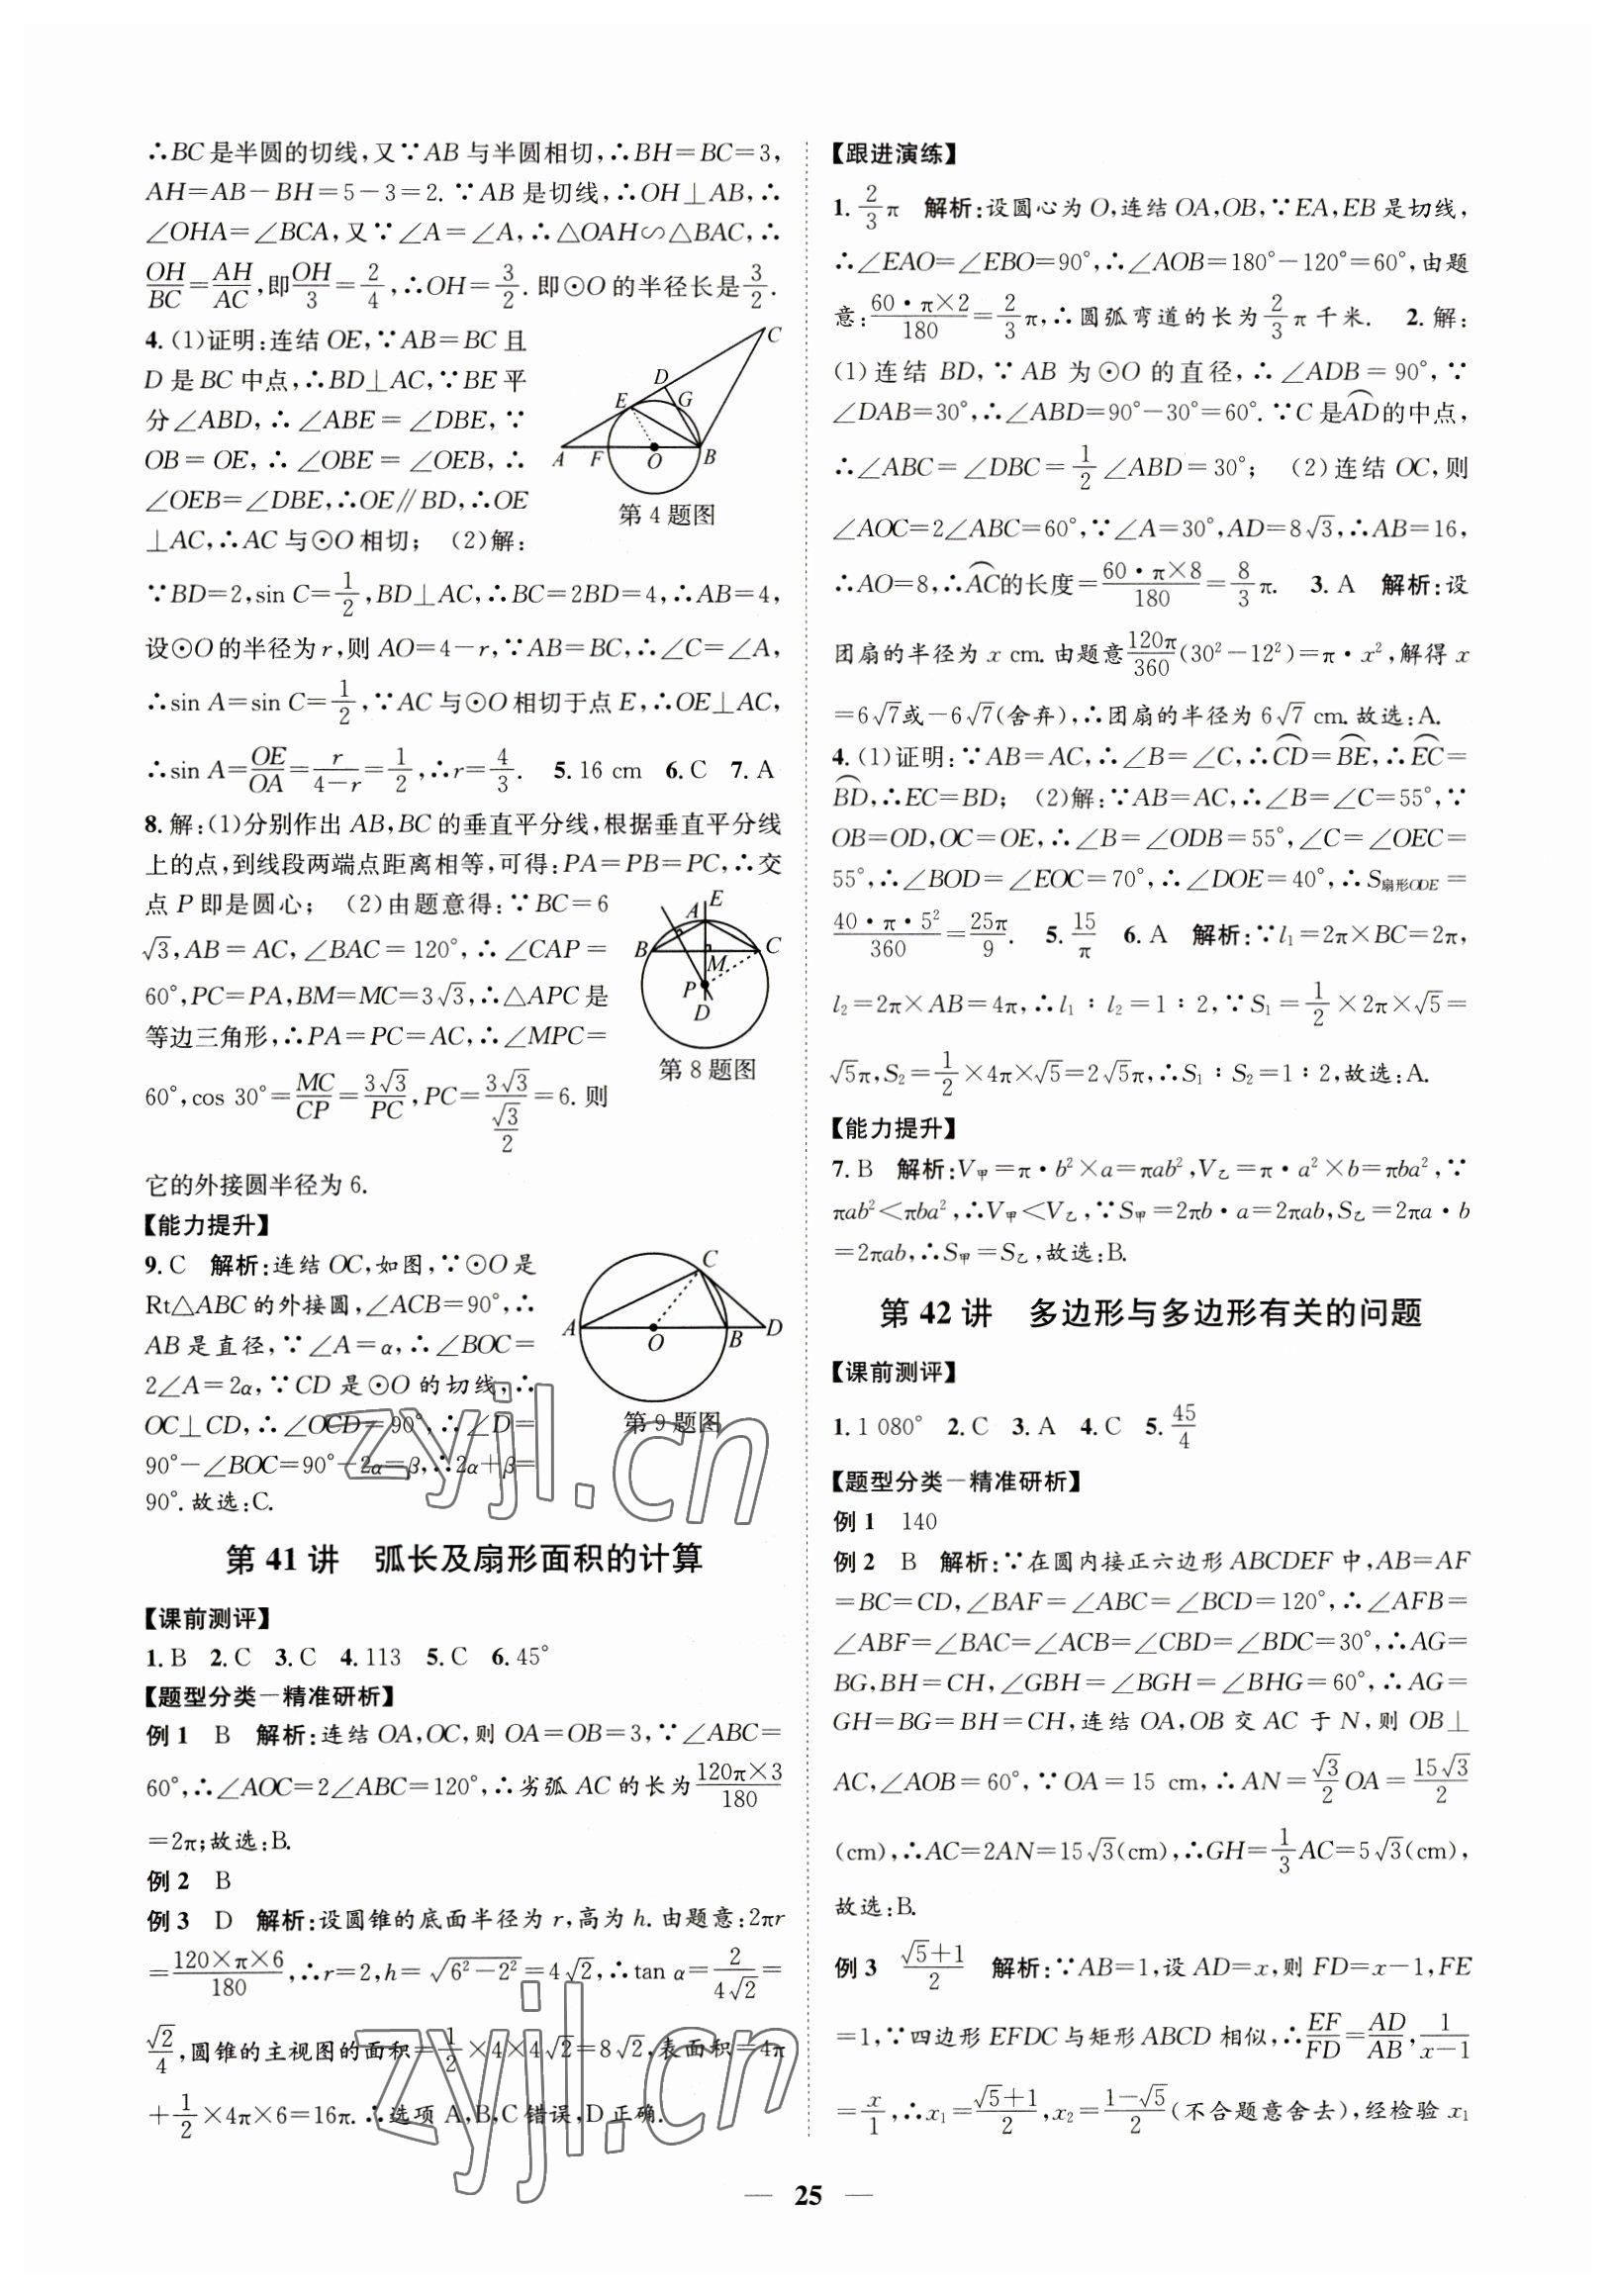 ∴BC是半圆的切线,又∵AB与半圆相切,∴BH=BC=3,
AH=AB-BH=5-3=2.∵AB是切线,∴OH⊥AB,∴
∠OHA=∠BCA,又∵∠A=∠A,∴△OAH∽△BAC,∴
OH/BC=AH/AC,即OH/3=2/4,∴OH=3/2.即⊙O的半径长是3/2.
4.(1)证明:连结OE,∵AB=BC且
D是BC中点,∴BD⊥AC,∵BE平
分∠ABD,∴∠ABE=∠DBE,∵
OB=OE,∴∠OBE=∠OEB,∴
∠OEB=∠DBE,∴OE∥BD,∴OE
⊥AC,∴AC与⊙O相切; (2)解:
A F O B E D G C
第4题图
∵BD=2,sin C=1/2,BD⊥AC,∴BC=2BD=4,∴AB=4,
设⊙O的半径为r,则AO=4-r,∵AB=BC,∴∠C=∠A,
∴sin A=sin C=1/2,∵AC与⊙O相切于点E,∴OE⊥AC,
∴sin A=OE/OA=r/(4-r)=1/2,∴r=4/3. 5.16 cm 6.C 7.A
8.解:(1)分别作出AB,BC的垂直平分线,根据垂直平分线
上的点,到线段两端点距离相等,可得:PA=PB=PC,∴交
点P即是圆心; (2)由题意得:∵BC=6
√3,AB=AC,∠BAC=120°,∴∠CAP=
60°,PC=PA,BM=MC=3√3,∴△APC是
等边三角形,∴PA=PC=AC,∴∠MPC=
60°,cos 30°=MC/CP=3√3/PC,PC=3√3/(√3/2)=6.则
E A B C M P D
第8题图
它的外接圆半径为6.
【能力提升】
9.C 解析:连结OC,如图,∵⊙O是
Rt△ABC的外接圆,∠ACB=90°,∴
AB是直径,∵∠A=α,∴∠BOC=
2∠A=2α,∵CD是⊙O的切线,∴
OC⊥CD,∴∠OCD=90°,∴∠D=
90°-∠BOC=90°-2α=β,∴2α+β=
90°.故选:C.
A O B D C
第9题图
第41讲 弧长及扇形面积的计算
【课前测评】
1.B 2.C 3.C 4.113 5.C 6.45°
【题型分类—精准研析】
例1 B 解析:连结OA,OC,则OA=OB=3,∵∠ABC=
60°,∴∠AOC=2∠ABC=120°,∴劣弧AC的长为120π×3/180
=2π;故选:B.
例2 B
例3 D 解析:设圆锥的底面半径为r,高为h.由题意:2πr
=120×π×6/180,∴r=2,h=√(6²-2²)=4√2,∴tan α=2/(4√2)=
√2/4,圆锥的主视图的面积=1/2×4×4√2=8√2,表面积=4π
+1/2×4π×6=16π.∴选项A,B,C错误,D正确.
【跟进演练】
1.2/3π 解析:设圆心为O,连结OA,OB,∵EA,EB是切线,
∴∠EAO=∠EBO=90°,∴∠AOB=180°-120°=60°,由题
意:60·π×2/180=2/3π,∴圆弧弯道的长为2/3π千米. 2.解:
(1)连结BD,∵AB为⊙O的直径,∴∠ADB=90°,∵
∠DAB=30°,∴∠ABD=90°-30°=60°.∵C是⌒AD的中点,
∴∠ABC=∠DBC=1/2∠ABD=30°; (2)连结OC,则
∠AOC=2∠ABC=60°,∵∠A=30°,AD=8√3,∴AB=16,
∴AO=8,∴⌒AC的长度=60·π×8/180=8/3π. 3.A 解析:设
团扇的半径为x cm.由题意120π/360(30²-12²)=π·x²,解得x
=6√7或-6√7(舍弃),∴团扇的半径为6√7 cm.故选:A.
4.(1)证明:∵AB=AC,∴∠B=∠C,∴⌒CD=⌒BE,∴⌒EC=
⌒BD,∴EC=BD; (2)解:∵AB=AC,∴∠B=∠C=55°,∵
OB=OD,OC=OE,∴∠B=∠ODB=55°,∠C=∠OEC=
55°,∴∠BOD=∠EOC=70°,∴∠DOE=40°,∴S扇形ODE=
40·π·5²/360=25π/9. 5.15/π 6.A 解析:∵l₁=2π×BC=2π,
l₂=2π×AB=4π,∴l₁∶l₂=1∶2,∵S₁=1/2×2π×√5=
√5π,S₂=1/2×4π×√5=2√5π,∴S₁∶S₂=1∶2,故选:A.
【能力提升】
7.B 解析:V甲=π·b²×a=πab²,V乙=π·a²×b=πba²,∵
πab²<πba²,∴V甲<V乙,∵S甲=2πb·a=2πab,S乙=2πa·b
=2πab,∴S甲=S乙,故选:B.
第42讲 多边形与多边形有关的问题
【课前测评】
1.1 080° 2.C 3.A 4.C 5.45/4
【题型分类—精准研析】
例1 140
例2 B 解析:∵在圆内接正六边形ABCDEF中,AB=AF
=BC=CD,∠BAF=∠ABC=∠BCD=120°,∴∠AFB=
∠ABF=∠BAC=∠ACB=∠CBD=∠BDC=30°,∴AG=
BG,BH=CH,∠GBH=∠BGH=∠BHG=60°,∴AG=
GH=BG=BH=CH,连结OA,OB交AC于N,则OB⊥
AC,∠AOB=60°,∵OA=15 cm,∴AN=√3/2 OA=15√3/2
(cm),∴AC=2AN=15√3(cm),∴GH=1/3 AC=5√3(cm),
故选:B.
例3 (√5+1)/2 解析:∵AB=1,设AD=x,则FD=x-1,FE
=1,∵四边形EFDC与矩形ABCD相似,∴EF/FD=AD/AB,1/(x-1)
=x/1,∴x₁=(√5+1)/2,x₂=(1-√5)/2(不合题意舍去),经检验x₁
— 25 —
zyjl.cn
zyjl.cn